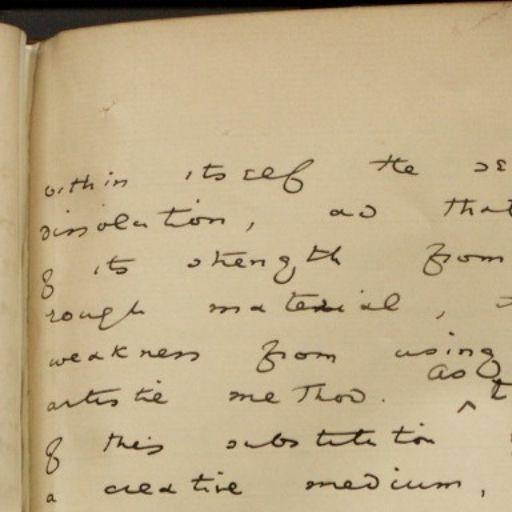 within itself the se
dissolution, as that
of its strength from
rough material,
weakness from using
as
artistic method.
of this substitution
a creative medium,